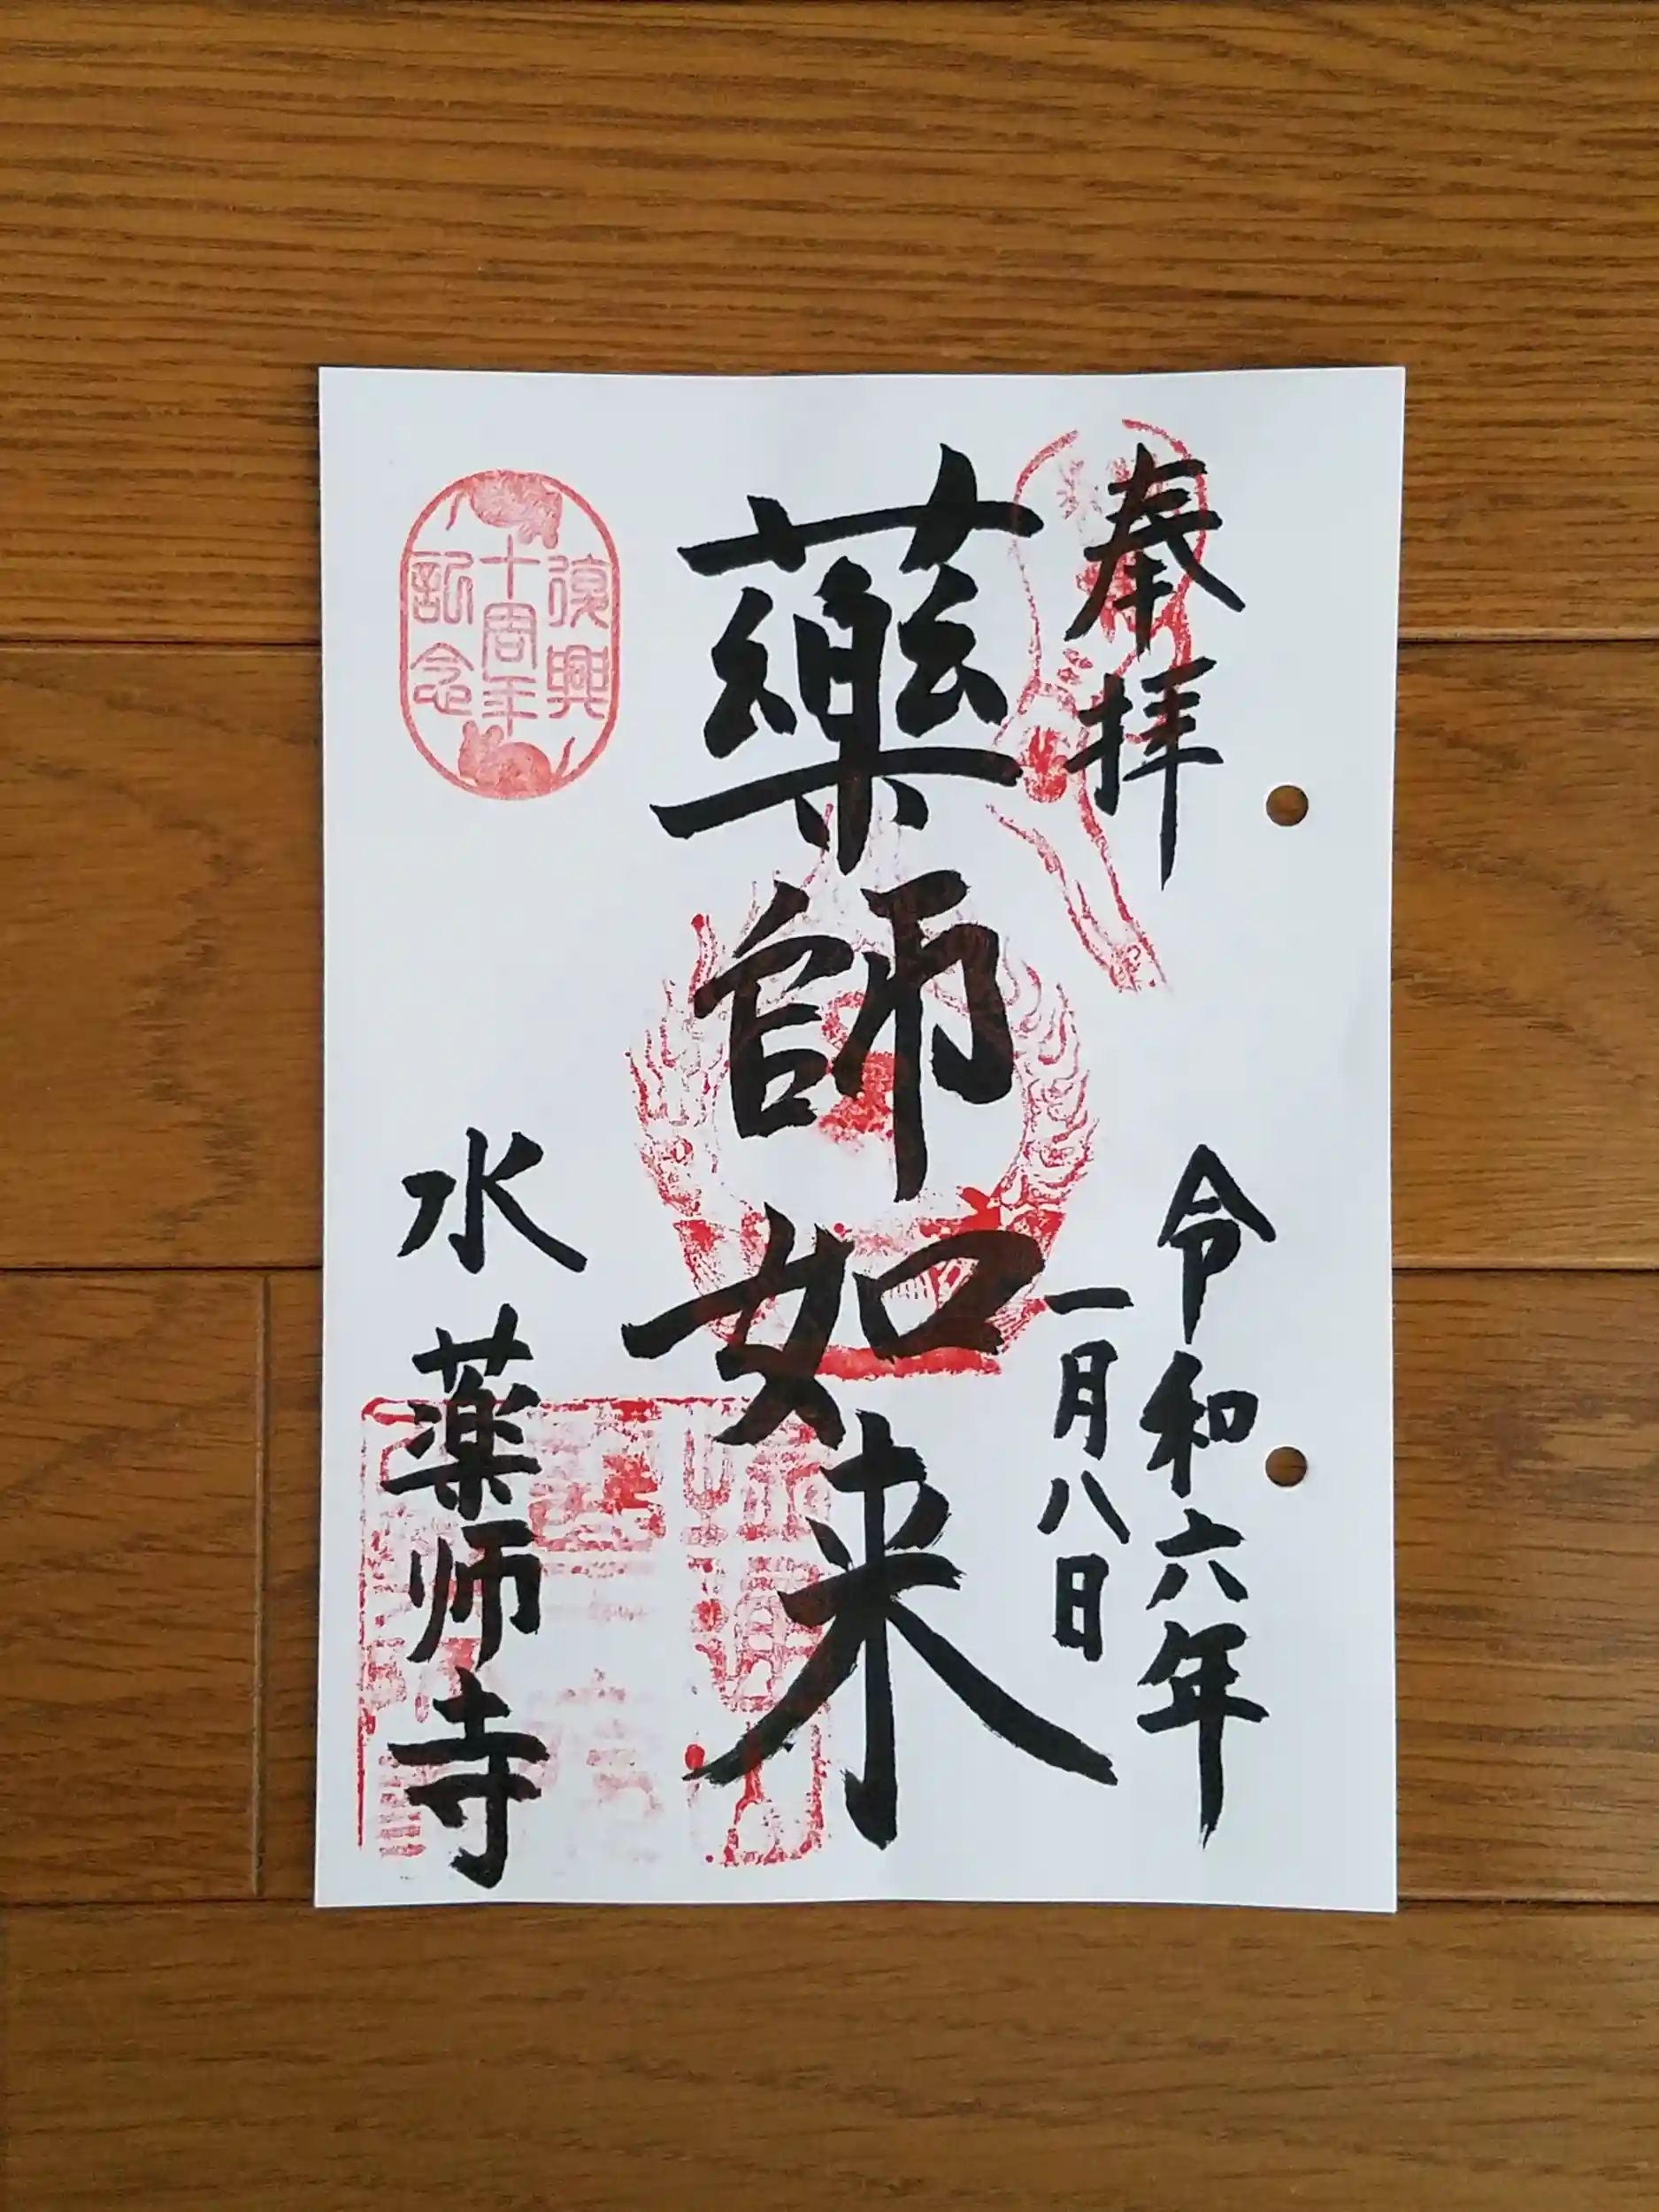 奉拝
令和六年
一月八日
藥師如来
水薬师寺
復興
十周年
記念